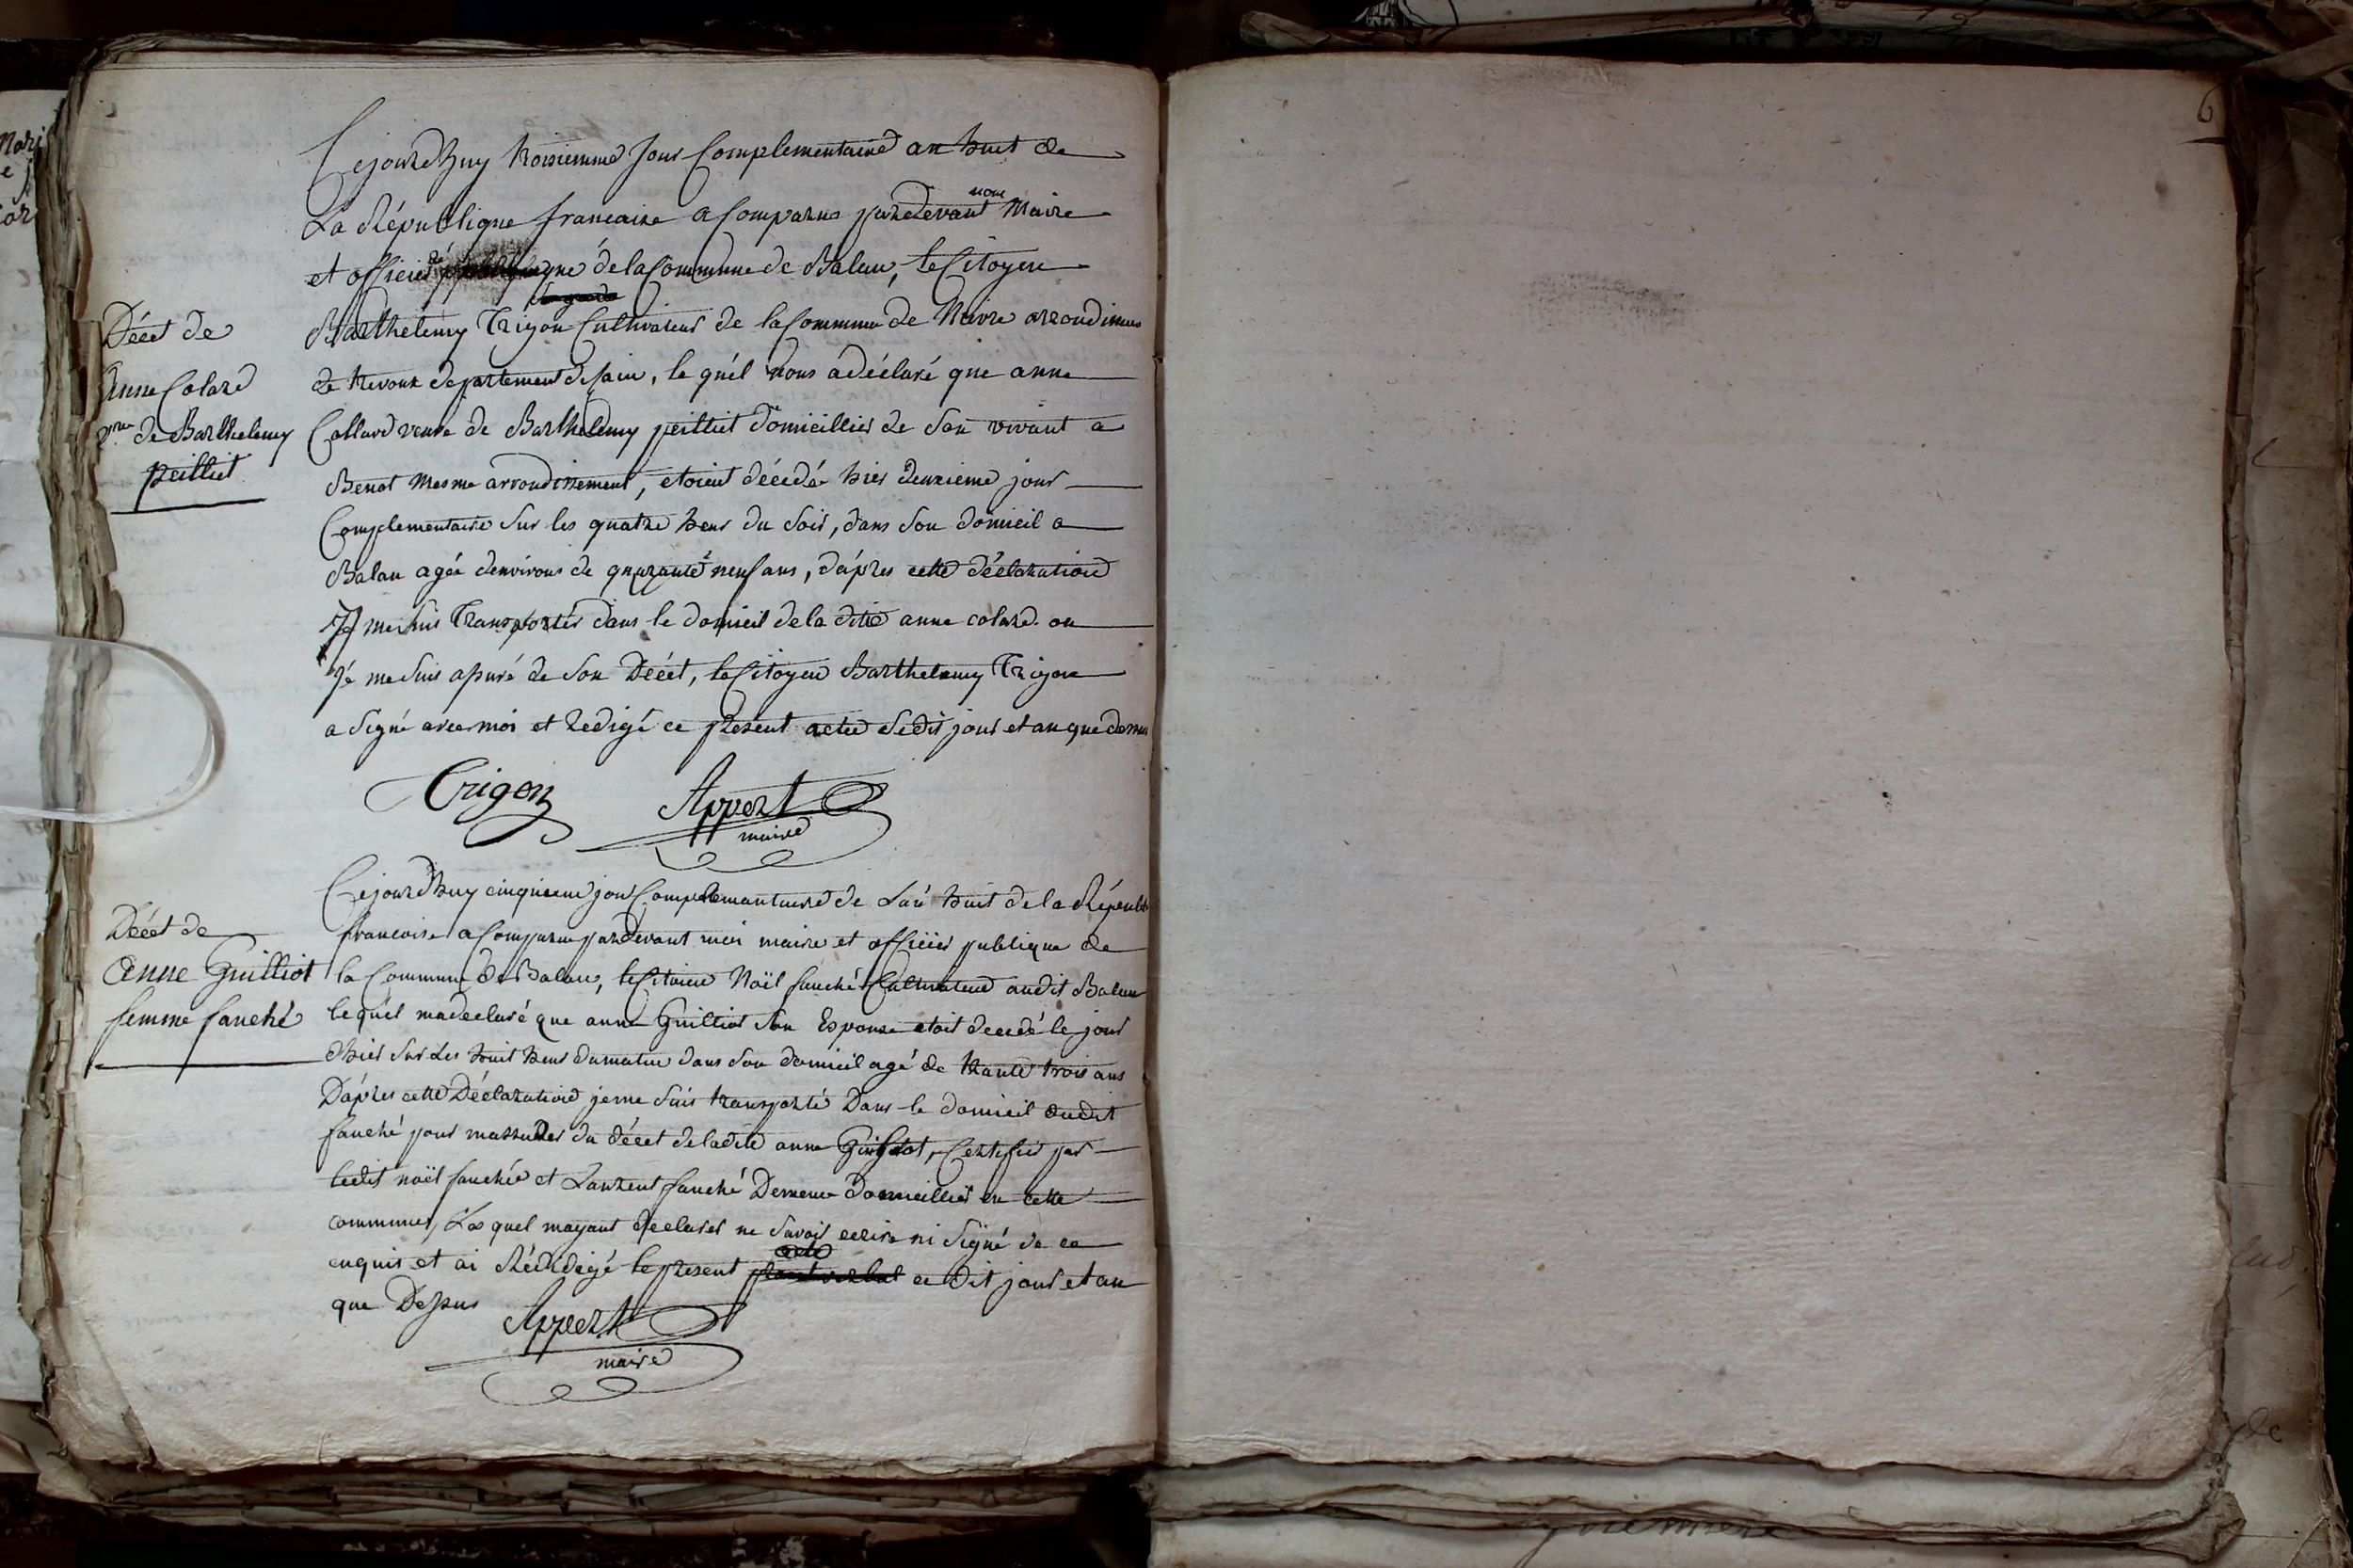 Cejourdhuy troisiemme Jour Complementaire an huit de
La République francaise a Comparus pardevant nous Maire
et officier de la Commune de Balan, le Citoyen
Barthélemy Trigon Cultivateur de la Commune de Nievre arrondimens
de trevoux departement de lain, lequél nous á déclaré que anne
Collard veuve de Barthelemy peilliet domicilliés de son vivant a
Benot mesme arrondissement, etoient décédée hier deuxieme jour
Complementaire sur les quatre heur du soir, dans son domicil a
Balan agée denvirons de quarante neuf ans, dáprès cette déclaration
Je me suis Transportés dans le domicil de la dite anne colard ou
Jé me suis assuré de son Décét, le Citoyen Barthelemy Trigon
a signé avec moi et redigé ce présent acte sédit jour et an que dessus
Trigon Appert
maire
Décét de
Anne Colard
vve de Barthelemy
peilliet
Cejourdhuy cinquieme jour Complemantaire de Lané huit de la Républi
francoise a Comparue pardevant moi maire et officiér publique de
la Commune de Balan, le Citoien Noël fauché Cultivateur audit Balan
lequél madeclaré que anne Guilliot son Espouse etoit decedé le jour
dhier sur Les huit heur du matin dans son domicil agé de trante trois ans
Dáprès cette Déclaration je me suis transporté Dans le domicil dudit
fauché pour massurer du décét de ladite anne Guilliot, Certifié par
ledit noël fauchée et Laurent fauché Dememe domicilliés en cette
commune, Lesquel mayant declarer ne savoir ecrire ni signé de ce
enquis et ai Rédigé le present acte ce dit jour et an
que Dessus
Appert
maire
Décét de
Anne Guilliot
femme fauché
6